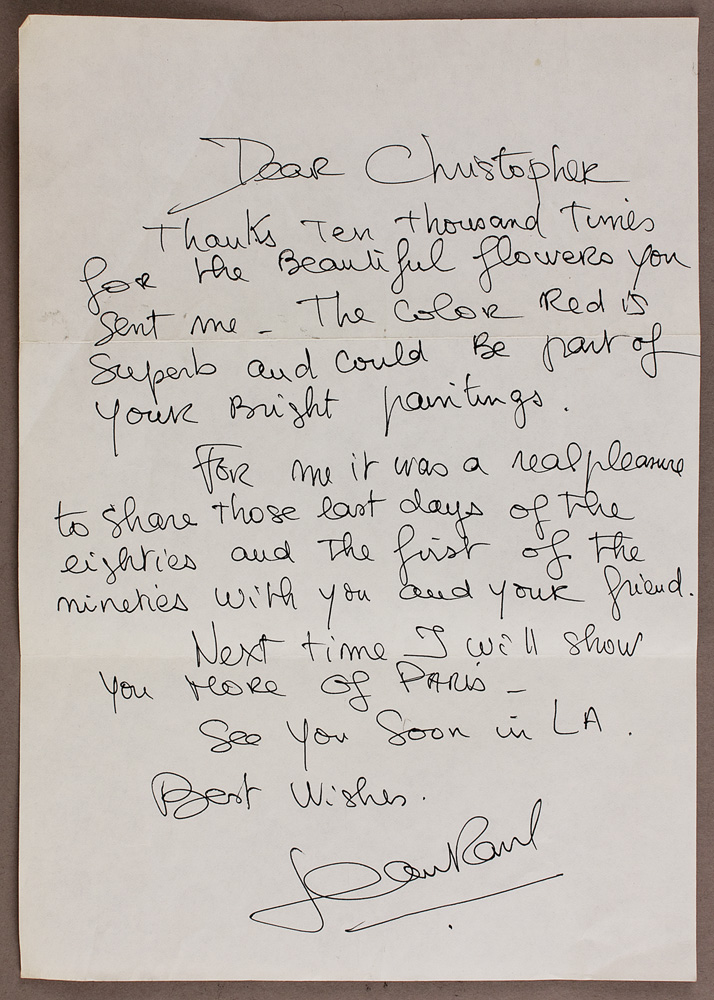 Dear Christopher
Thanks Ten thousand Times
for the Beautiful flowers you
sent me - The Color Red is
superb and could Be part of
your Bright paintings.
For me it was a real pleasure
to share those last days of the
eighties and the first of the
nineties with you and your friend.
Next time I will show
you more of PARIS -
See you soon in LA.
Best Wishes.
Jean Paul